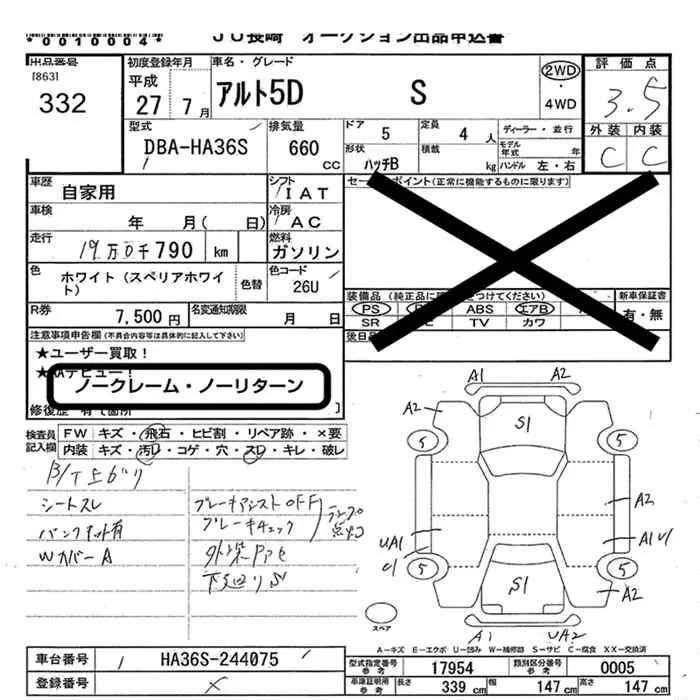 *0010004*
JU長崎 オークション出品申込書
出品番号
[863]
332
初度登録年月
平成
27 7月
車名・グレード
アルト5D S
2WD
・
4WD
評価点
3.5
外装 内装
C C
型式
DBA-HA36S
排気量
660
CC
ドア 5
定員 4 人
ディーラー・並行
形状 ハッチB
積載 kg
モデル年式 年
ハンドル 左・右
車歴
自家用
シフト
IAT
車検
年 月( 日)
冷房
AC
走行
19万0千790 km
燃料
ガソリン
色
ホワイト(スペリアホワイト)
色替
色コード
26U
R券
7,500円
名変通知期限
月 日
セールスポイント(正常に機能するものに限ります)
装備品
PS
ABS
エアB
SR
TV
カワ
新車保証書
有・無
後日品
注意事項申告欄(不具合内容等は具体的に記入して下さい)
★ユーザー買取!
★AAデビュー!
ノークレーム・ノーリターン
修復歴 有で箇所
検査員
記入欄
FW キズ・飛石・ヒビ割・リペア跡・×要
内装 キズ・汚レ・コゲ・穴・スレ・キレ・破レ
シートスレ
パンクキット有
WカバーA
ブレーキアシストOFF
ブレーキチェック
ランプ点灯
下廻りS
A1 A2
A2
S1
5 5
A2
UA1
A1 U1
5 5
S1
A2
A1 UA2
スペア
A-キズ E-エクボ U-凹み W-補修跡 S-サビ C-腐食 XX-交換済
車台番号
HA36S-244075
登録番号
型式指定番号
参考
17954
類別区分番号
参考
0005
車庫証明用
参考
長さ 339 cm
幅 147 cm
高さ 147 cm